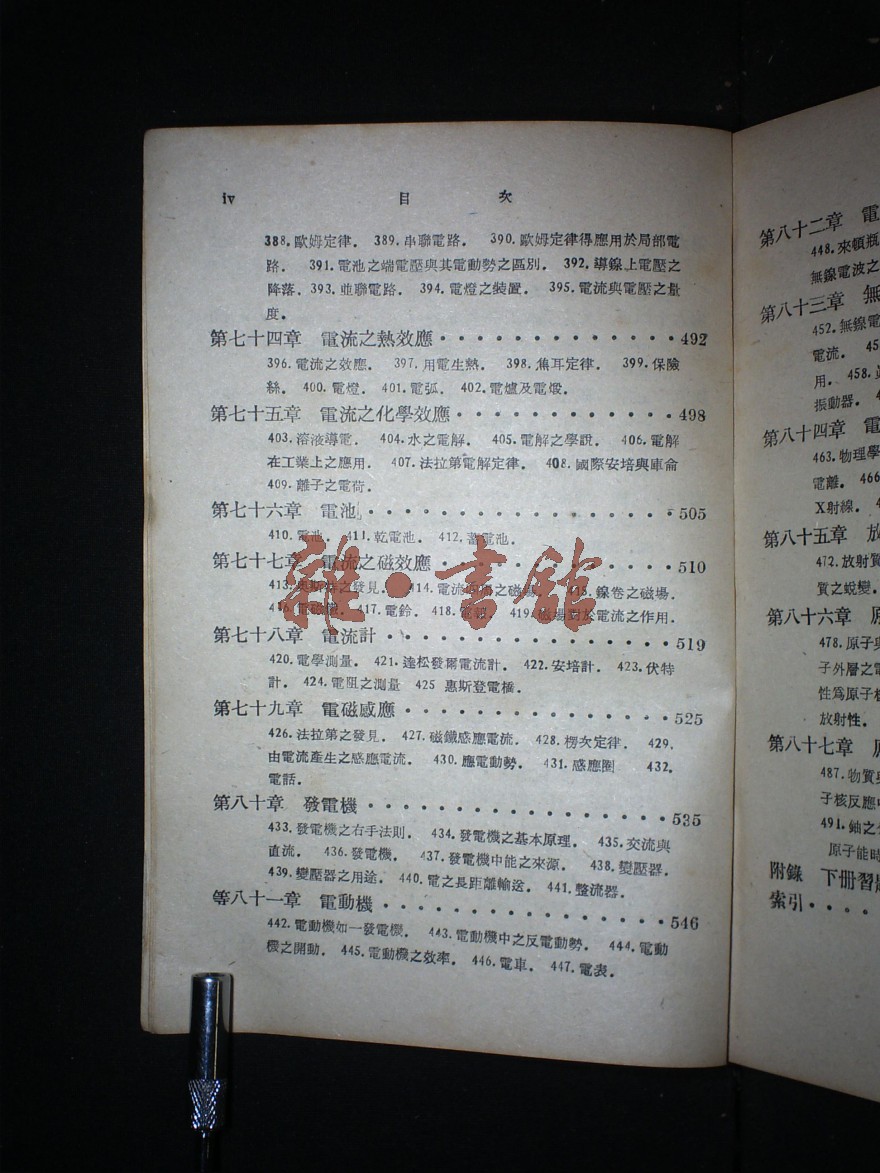 iv 目 次
388.歐姆定律. 389.串聯電路. 390.歐姆定律得應用於局部電
路. 391.電池之端電壓與其電動勢之區別. 392.導線上電壓之
降落. 393.並聯電路. 394.電燈之裝置. 395.電流與電壓之量
度.
第七十四章 電流之熱效應・・・・・・・・・・・・・492
396.電流之效應. 397.用電生熱. 398.焦耳定律. 399.保險
絲. 400.電燈. 401.電弧. 402.電爐及電煅.
第七十五章 電流之化學效應・・・・・・・・・・・・498
403.溶液導電. 404.水之電解. 405.電解之學說. 406.電解
在工業上之應用. 407.法拉第電解定律. 408.國際安培與庫侖
409.離子之電荷.
第七十六章 電池・・・・・・・・・・・・・・・・505
410.電池. 411.乾電池. 412.蓄電池.
第七十七章 電流之磁效應・・・・・・・・・・・・・510
413.奧斯特之發見. 414.電流 之磁 415.線卷之磁場.
416.電磁鐵. 417.電鈴. 418.電報. 419.磁場對於電流之作用.
雜・書館
第七十八章 電流計・・・・・・・・・・・・・・・519
420.電學測量. 421.達松發爾電流計. 422.安培計. 423.伏特
計. 424.電阻之測量 425 惠斯登電橋.
第七十九章 電磁感應・・・・・・・・・・・・・・525
426.法拉第之發見. 427.磁鐵感應電流. 428.楞次定律. 429.
由電流產生之感應電流. 430.應電動勢. 431.感應圈 432.
電話.
第八十章 發電機・・・・・・・・・・・・・・・・535
433.發電機之右手法則. 434.發電機之基本原理. 435.交流與
直流. 436.發電機. 437.發電機中能之來源. 438.變壓器.
439.變壓器之用途. 440.電之長距離輸送. 441.整流器.
等八十一章 電動機・・・・・・・・・・・・・・・546
442.電動機如一發電機. 443.電動機中之反電動勢. 444.電動
機之開動. 445.電動機之效率. 446.電車. 447.電表.
第八十二章 電
448.來頓瓶
無線電波之
第八十三章 無
452.無線電
電流. 45
用. 458.
振動器. 4
第八十四章 電
463.物理學
電離. 466
X射線. 4
第八十五章 放
472.放射質
質之蛻變.
第八十六章 原
478.原子與
子外層之電
性爲原子核
放射性.
第八十七章 原
487.物質與
子核反應中
491.鈾之分
原子能時
附錄 下册習題
索引・・・・